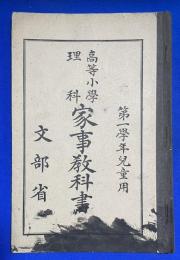 第一學年兒童用
高等小學
理科
家事教科書
文部省